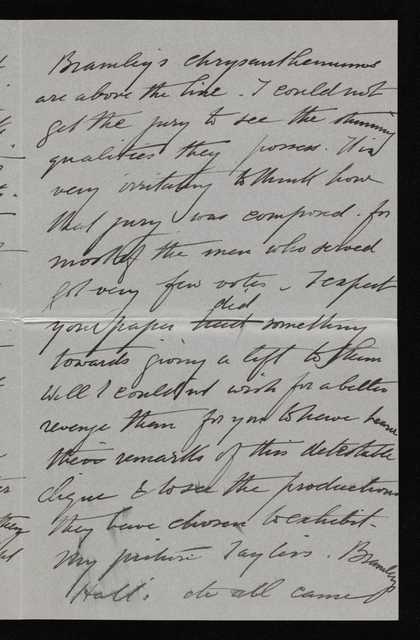 Bramley's chrysanthemums
are above the line. I could not
get the jury to see the stunning
qualities they possess. It is
very irritating to think how
that jury was composed. for
most of the men who served
got very few votes. I expect
your paper did something
towards giving a lift to them
Well I could not wish for a better
revenge them for you to have
their remarks of this detestable
clique & to see the productions
they have chosen to exhibit.
My picture Taylers. Bramleys
Hall's etc all came